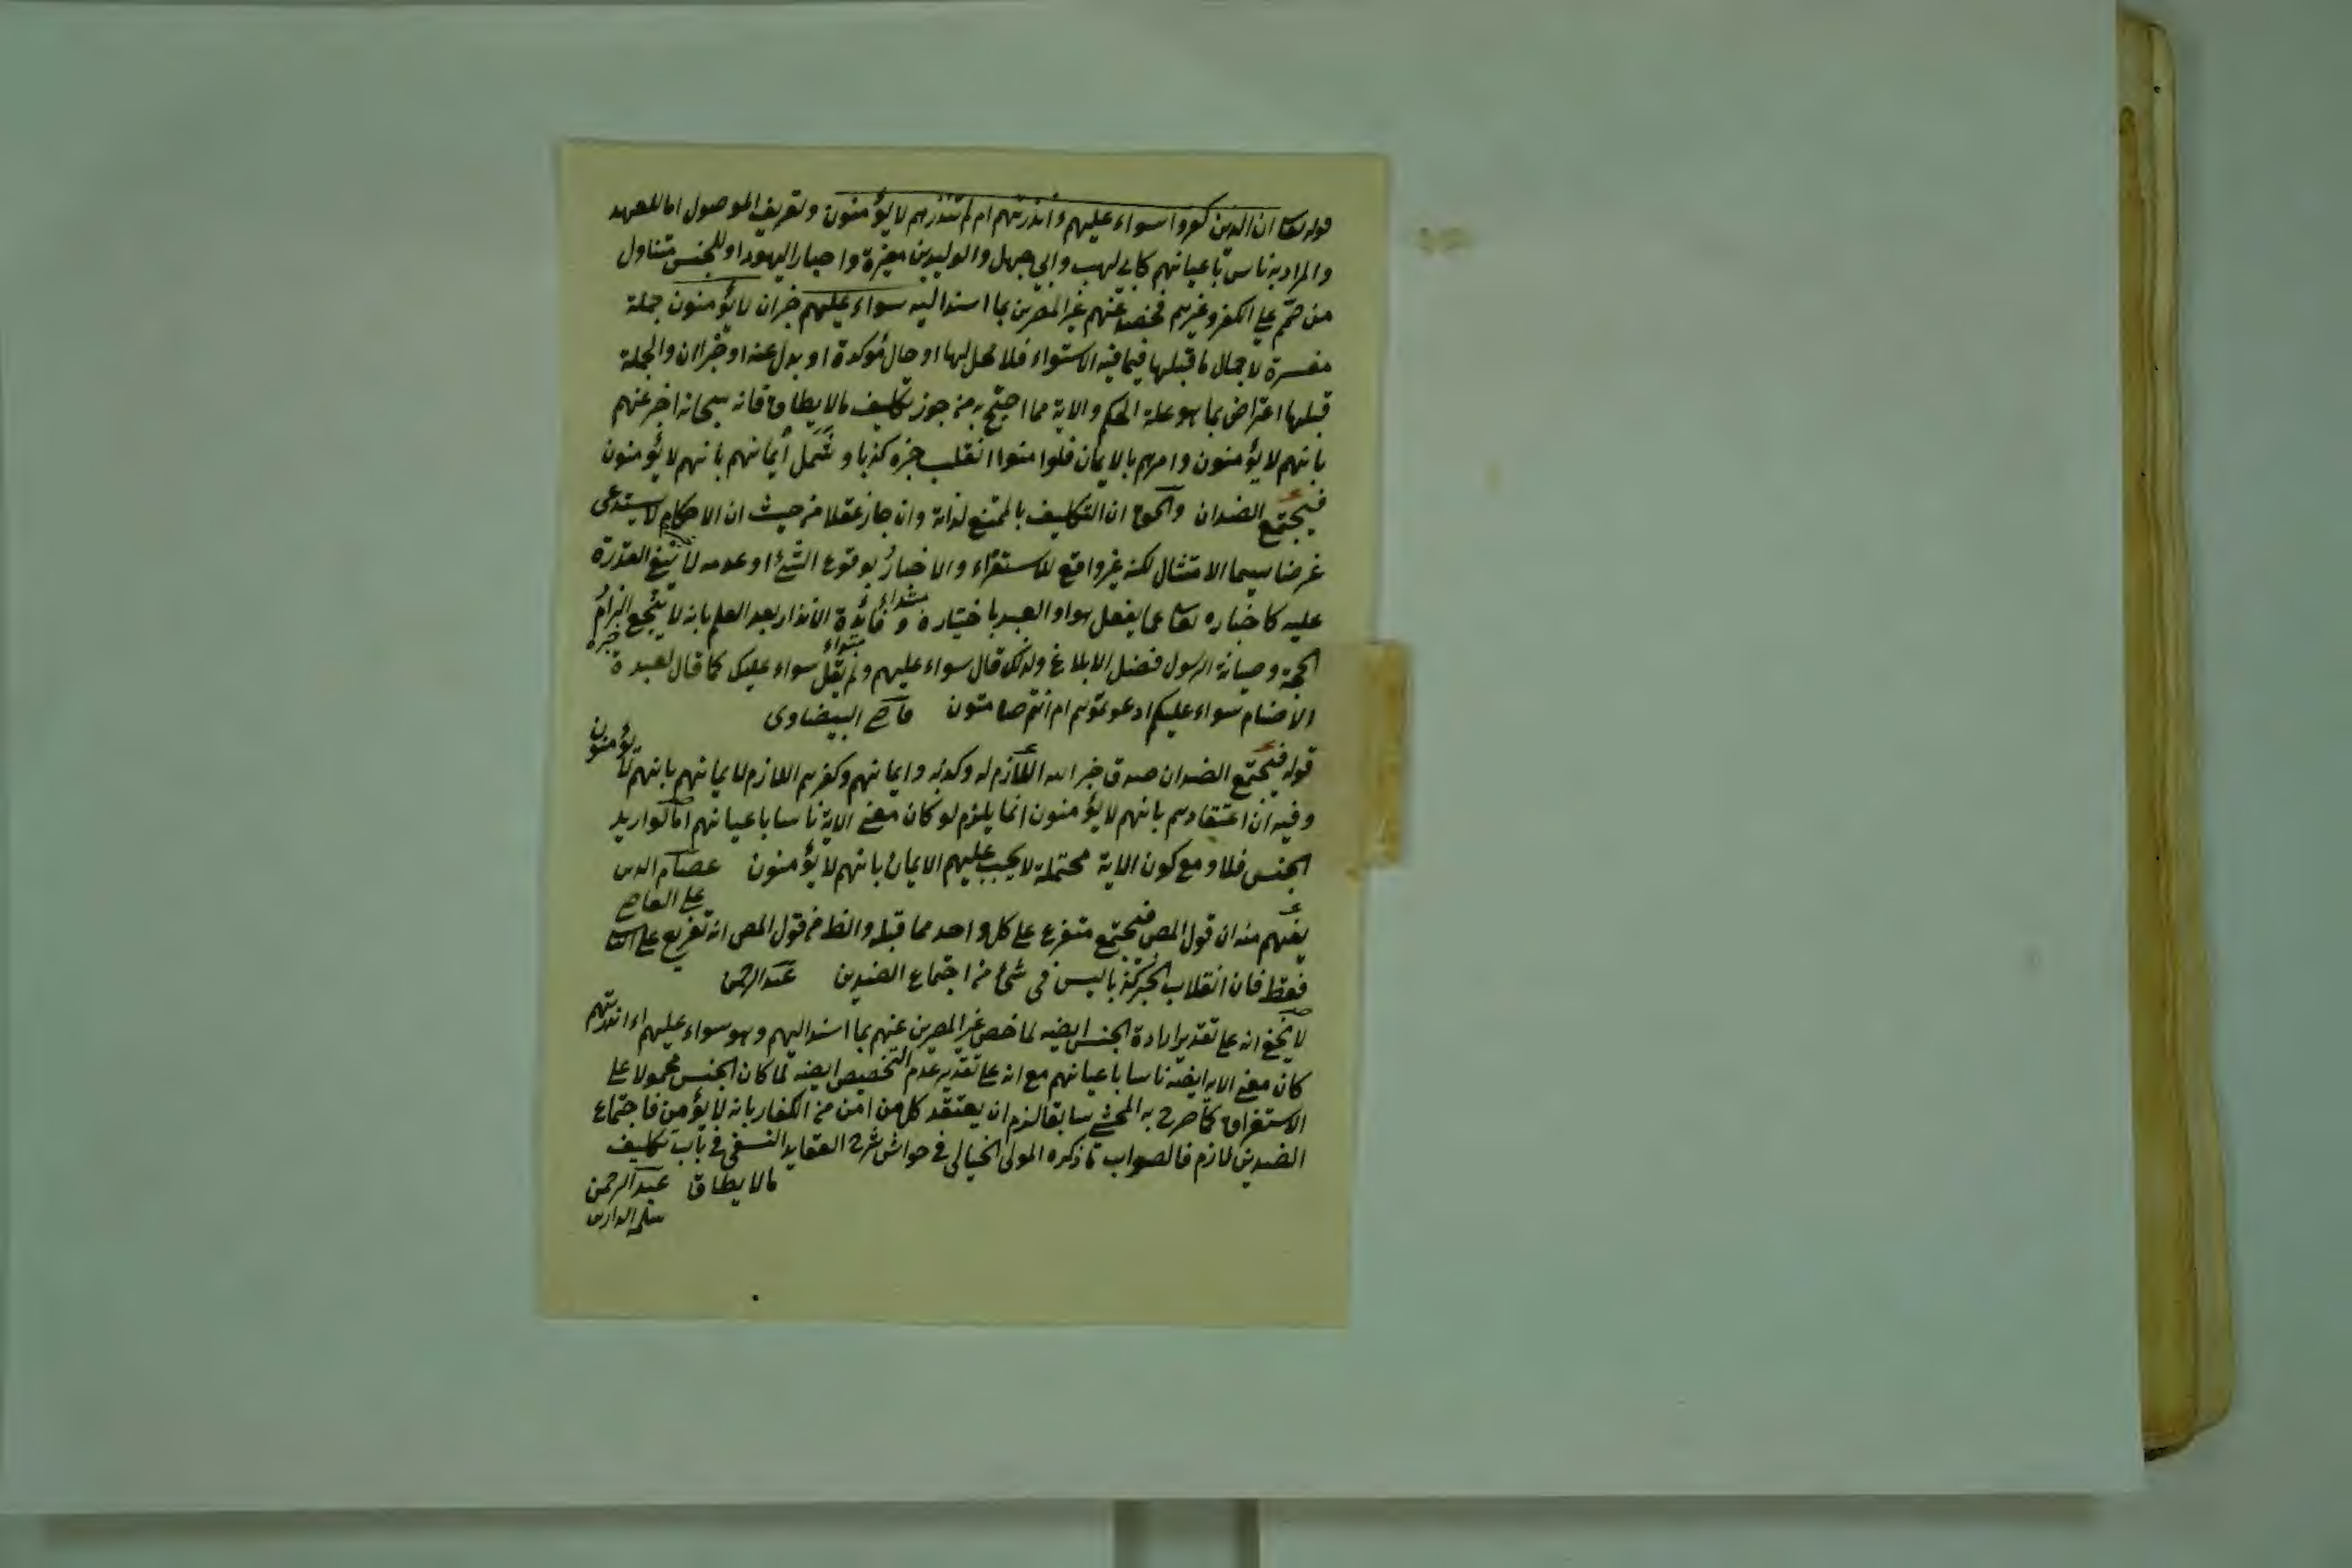 قوله تعا ان الذين كفروا سواء عليهم ءانذرتهم ام لم تنذرهم لا يؤمنون وتعريف الموصول اما للعهد
والمراد به ناس باعيانهم كابي لهب وابي جهل والوليد بن مغيرة واحبار اليهود او للجنس متناول
من صمم على الكفر وغيرهم فخص عنهم غير المصرين بما اسند اليه سواء عليهم خبر ان لا يؤمنون جملة
مفسرة لاجمال ما قبلها فيما فيه الاستواء فلا محل لها او حال مؤكدة او بدل عنه او خبر ان والجملة
قبلها اعتراض بما هو علة الحكم والاية مما احتج به من جوز تكليف مالا يطاق فانه سبحانه اخبر عنهم
بانهم لا يؤمنون وامرهم بالايمان فلو امنوا انقلب خبره كذبا وشمل ايمانهم بانهم لا يؤمنون
فيجتمع الضدان والحق ان التكليف بالممتنع لذاته وان جاز عقلا من حيث ان الاحكام لا يستدعى
غرضا سيما الامتثال لكنه غير واقع للاستقراء والاخبار بوقوع الشئ او عدمه لا ينفي القدرة
عليه كاخباره تعا عما يفعل هو او العبد باختياره وفائدة الانذار بعد العلم بانه لا ينجع الزام
مبتداء
خبره
الحجة وحيازة الرسول فضل الابلاغ ولذلك قال سواء عليهم ولم يقل سواء عليك كما قال لعبدة
الاصنام سواء عليكم ادعوتموهم ام انتم صامتون قاضي البيضاوى
قوله فيجتمع الضدان صدق خبر الله اللازم له وكذبه وايمانهم وكفرهم اللازم لايمانهم بانهم لا يؤمنون
وفيه ان اعتقادهم بانهم لا يؤمنون انما يلزم لو كان معنى الاية ناسا باعيانهم اما لو اريد
الجنس فلا ومع كون الاية محتملة لا يجب عليهم الايمان بانهم لا يؤمنون عصام الدين
على القاضي
يفهم منه ان قول المص فيجتمع متفرع على كل واحد مما قبله والظ من قول المص انه تفريع على الثا
فقط فان انقلاب الخبر كذبا ليس في شئ من اجتماع الضدين عبد الرحمن
لا يخفى انه على تقدير ارادة الجنس ايضه لما خص غير المصرين عنهم بما اسند اليهم وهو سواء عليهم ءانذرتهم
كان معنى الايه ايضه ناسا باعيانهم مع انه على تقدير عدم التخصيص ايضه لما كان الجنس محمولا على
الاستغراق كما صرح به المحشي سابقا لزم ان يعتقد كل من امن من الكفار بانه لا يؤمن فاجتماع
الضدين لازم فالصواب ما ذكره المولى الخيالى في حواشى شرح العقايد النسفى في باب تكليف
مالا يطاق عبد الرحمن